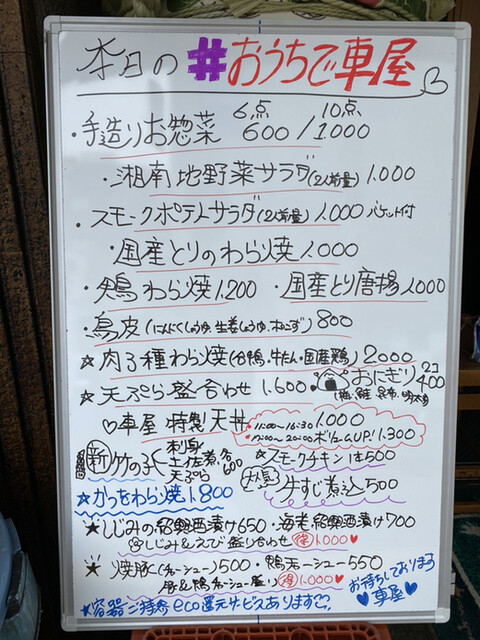 本日の#おうちで車屋
・手造りお惣菜 6点600/10点1000
・湘南地野菜サラダ(2人前量)1.000
・スモークポテトサラダ(2人前量)1.000 バケット付
・国産とりのわら焼1.000
・鶏わら焼1.200 ・国産とり唐揚1.000
・鳥皮(にんにくしょうゆ,生姜しょうゆ,ねぎ)800
☆肉3種わら焼(合鴨,牛たん,国産鶏)2000
☆天ぷら盛合わせ1.600 ・おにぎり2コ400
(梅,鮭,昆布,明太子)
♡車屋特製天丼 11:00〜16:30 1.000
17:00〜20:00ボリュームUP!1.300
新 竹の子 刺身 土佐煮 天ぷら 各600
☆スモークチキン1本500
☆かつをわら焼1.800
人気 牛すじ煮込500
★しじみの紹興酒漬け650・海老紹興酒漬け700
しじみ&えび盛り合わせ 得1.000♥
★焼豚(チャーシュー)500・鴨チャーシュー550
豚&鴨チャーシュー盛り 得1.000♥
★容器ご持参eco還元サービスあります
お待ちしております
♥車屋♥